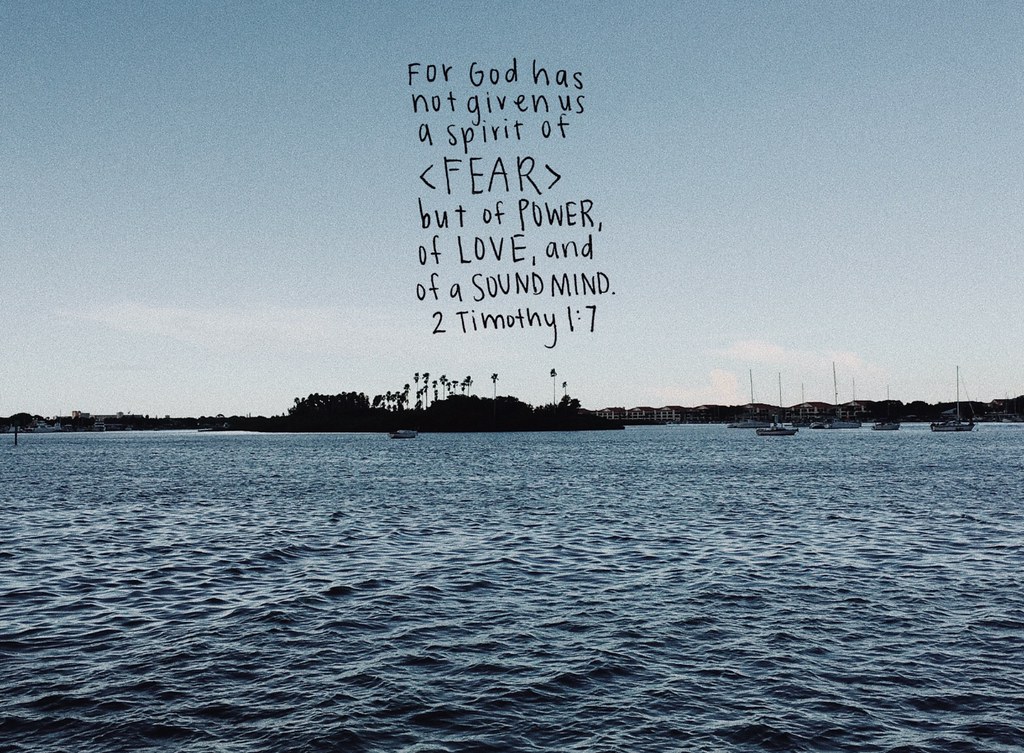 For God has
not given us
a spirit of
<FEAR>
but of POWER,
of LOVE, and
of a SOUND MIND.
2 Timothy 1:7